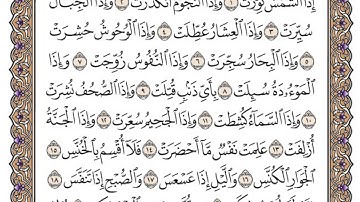 إِذَا ٱلشَّمۡسُ كُوِّرَتۡ ١ وَإِذَا ٱلنُّجُومُ ٱنكَدَرَتۡ ٢ وَإِذَا ٱلۡجِبَالُ
سُيِّرَتۡ ٣ وَإِذَا ٱلۡعِشَارُ عُطِّلَتۡ ٤ وَإِذَا ٱلۡوُحُوشُ حُشِرَتۡ
٥ وَإِذَا ٱلۡبِحَارُ سُجِّرَتۡ ٦ وَإِذَا ٱلنُّفُوسُ زُوِّجَتۡ ٧ وَإِذَا
ٱلۡمَوۡءُۥدَةُ سُئِلَتۡ ٨ بِأَيِّ ذَنۢبٖ قُتِلَتۡ ٩ وَإِذَا ٱلصُّحُفُ نُشِرَتۡ
١٠ وَإِذَا ٱلسَّمَآءُ كُشِطَتۡ ١١ وَإِذَا ٱلۡجَحِيمُ سُعِّرَتۡ ١٢ وَإِذَا ٱلۡجَنَّةُ
أُزۡلِفَتۡ ١٣ عَلِمَتۡ نَفۡسٞ مَّآ أَحۡضَرَتۡ ١٤ فَلَآ أُقۡسِمُ بِٱلۡخُنَّسِ ١٥
ٱلۡجَوَارِ ٱلۡكُنَّسِ ١٦ وَٱلَّيۡلِ إِذَا عَسۡعَسَ ١٧ وَٱلصُّبۡحِ إِذَا تَنَفَّسَ ١٨